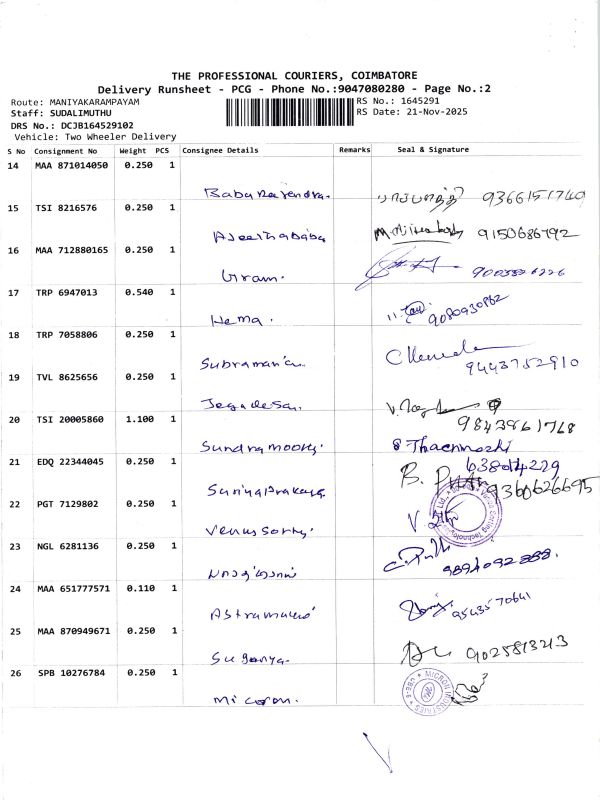 THE PROFESSIONAL COURIERS, COIMBATORE
Delivery Runsheet - PCG - Phone No.:9047080280 - Page No.:2
Route: MANIYAKARAMPAYAM
RS No.: 1645291
Staff: SUDALIMUTHU
RS Date: 21-Nov-2025
DRS No.: DCJB164529102
Vehicle: Two Wheeler Delivery
S No Consignment No Weight PCS Consignee Details Remarks Seal & Signature
14 MAA 871014050 0.250 1
Babu Rajendra. 9366151740
15 TSI 8216576 0.250 1
Ajeetha Baba 9150686792
16 MAA 712880165 0.250 1
Viram.
17 TRP 6947013 0.540 1
Hema. 9080930862
18 TRP 7058806 0.250 1
Subramani 9443752910
19 TVL 8625656 0.250 1
Jegadesan. 9843961768
20 TSI 20005860 1.100 1
Sundramoorty. Thaenmozhi
21 EDQ 22344045 0.250 1
Suriya Prakash 9360626695
22 PGT 7129802 0.250 1
Venus sorty.
23 NGL 6281136 0.250 1
9894092888.
24 MAA 651777571 0.110 1
9543570641
25 MAA 870949671 0.250 1
Suganya. 9025813213
26 SPB 10276784 0.250 1
Micron. MICRON INDUSTRIES